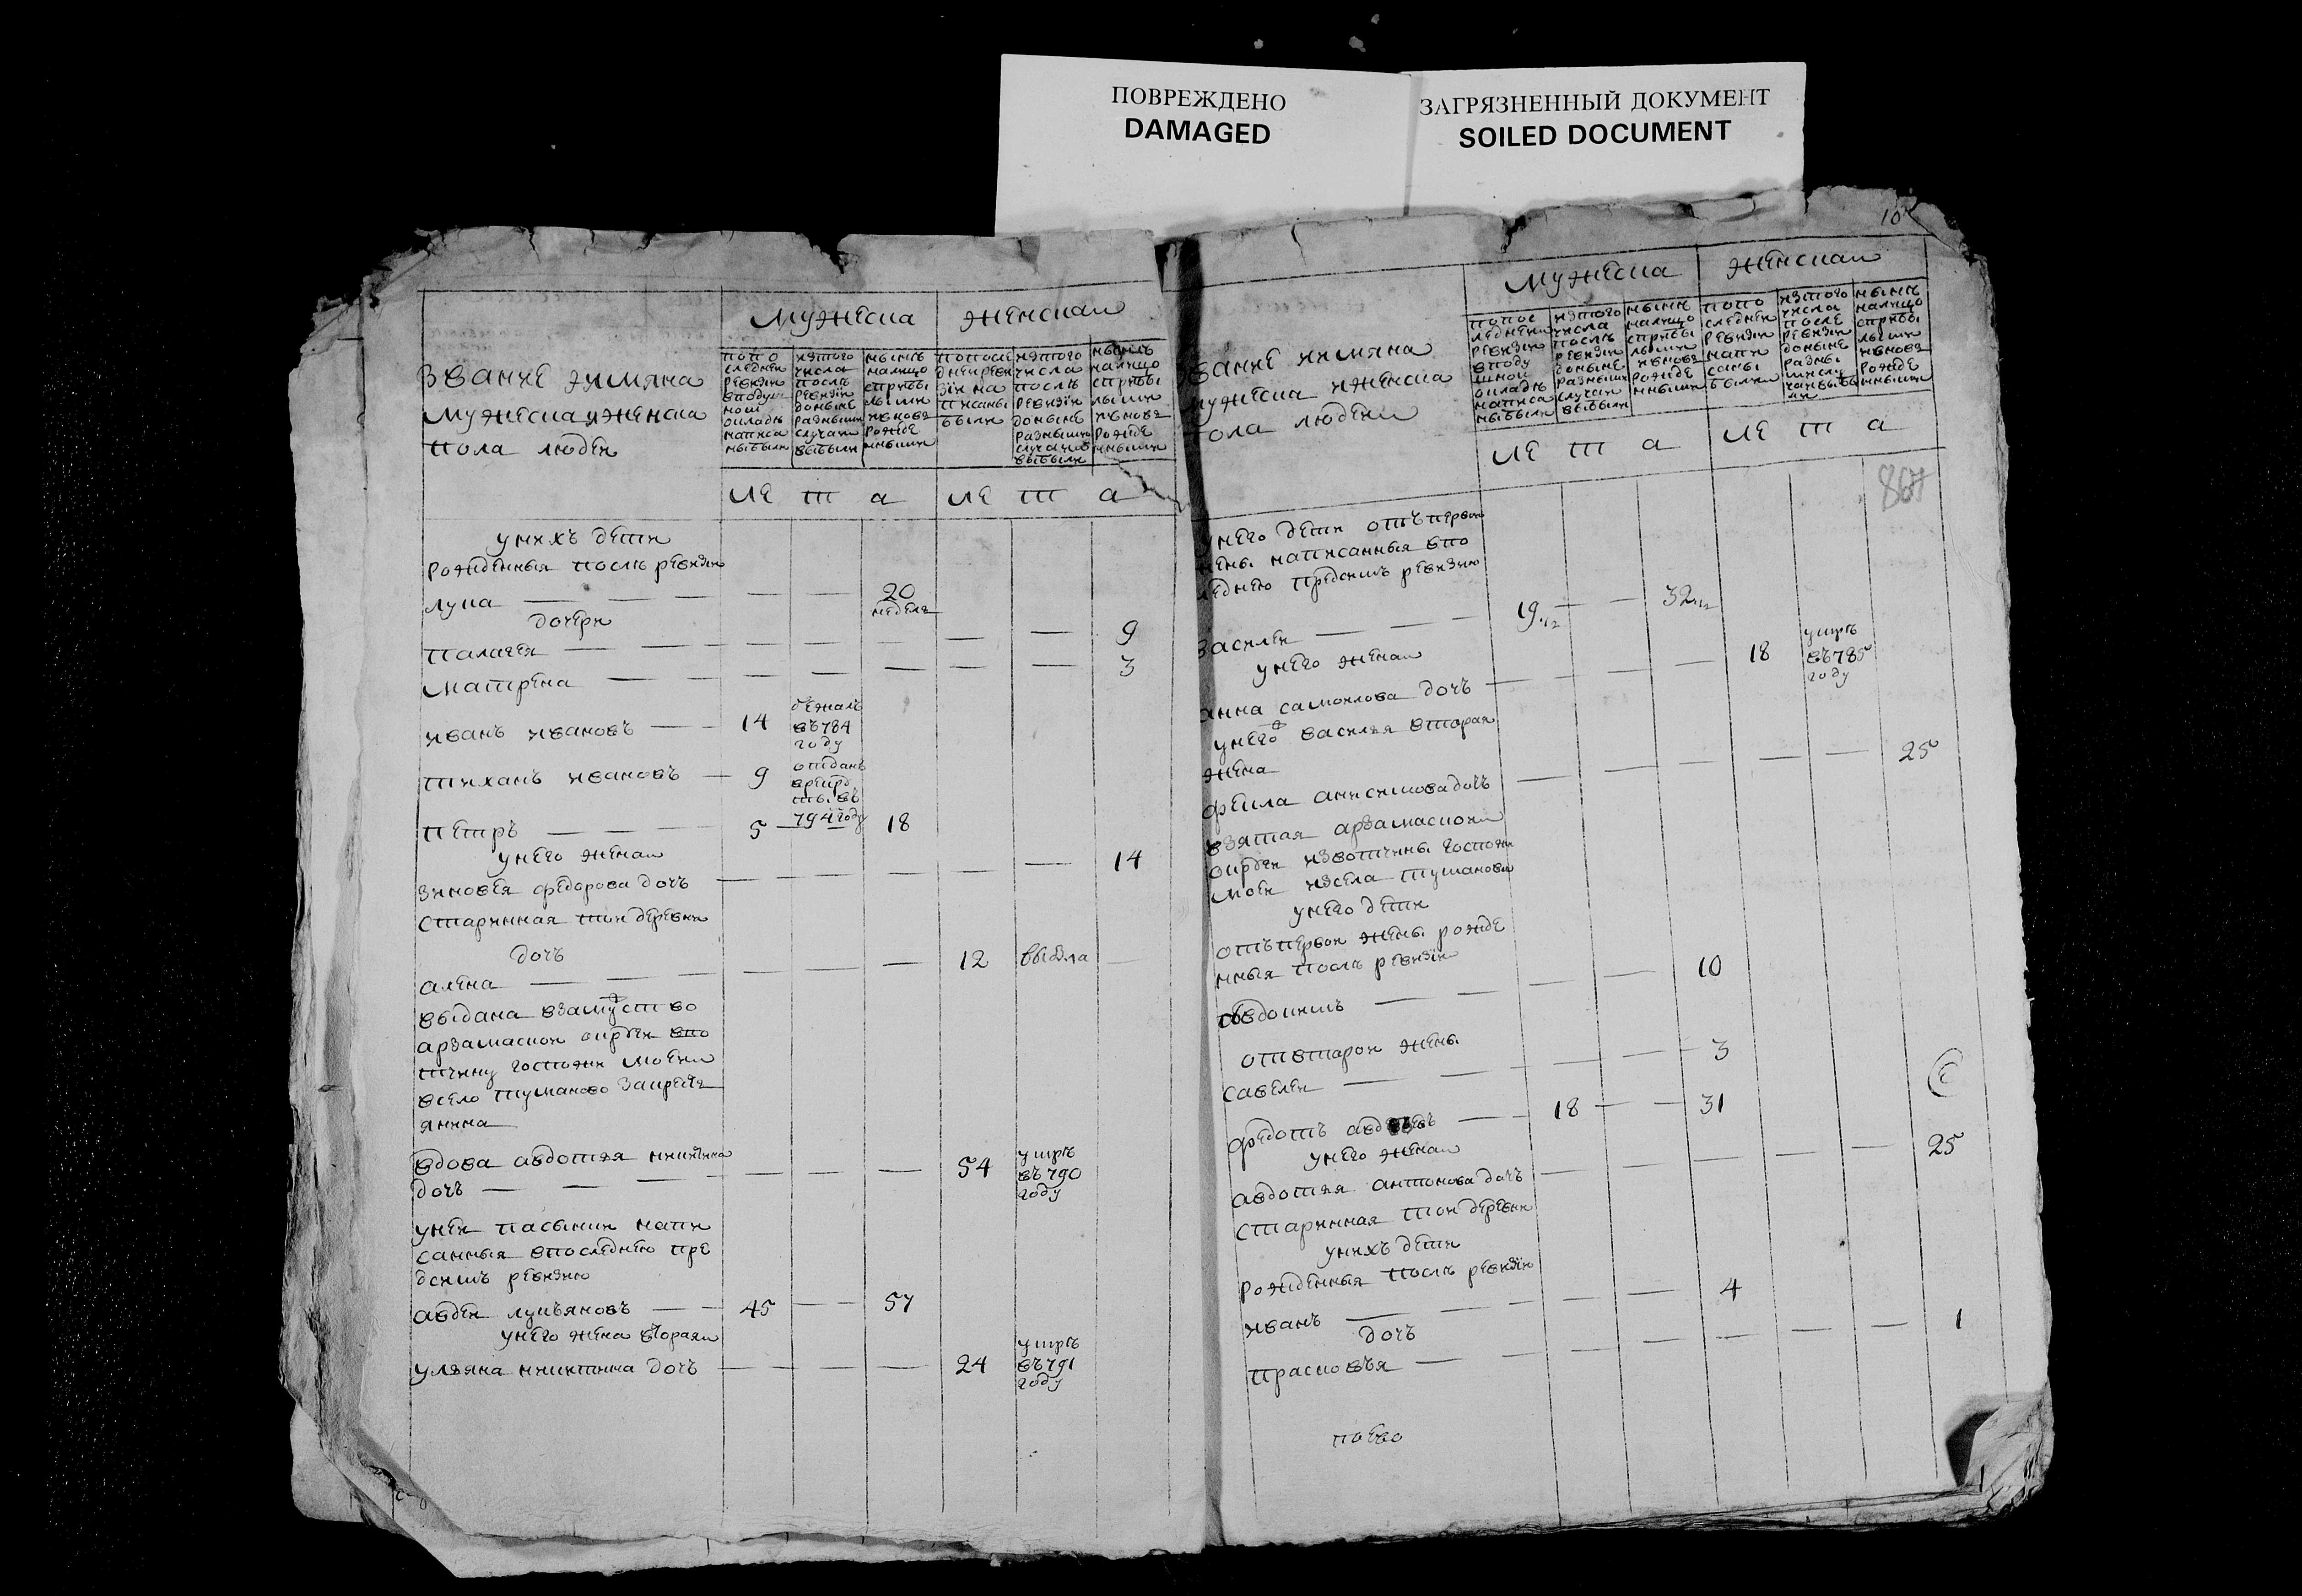 ПОВРЕЖДЕНО
DAMAGED
ЗАГРЯЗНЕННЫЙ ДОКУМЕНТ
SOILED DOCUMENT
звание иимяна
мужеска иженска
пола людеи
мужеска
женскаи
попо
следнеи
ревизии
вподуш
ном
окладе
написа
ныбыли
изтого
числа
после
ревизии
доныне
разными
случаи
выбыли
ныне
налицо
сприбы
лыми
ивновь
рожде
нными
попосле
днеиреви
зiи на
писаны
были
изтого
числа
после
ревизiи
доныне
разными
случаи
выбыли
ныне
налицо
сприбы
лыми
ивновь
рожде
нными
ле т а
ле т а
унихъ дети
рожденныя после ревизiи
лука 20
неделя
дочери
палагея 9
матрена 3
иванъ ивановъ 14 бежалъ
въ784
году
тиханъ ивановъ 9 отданъ
врекрб
ты въ
794году
петръ 5 18
унего женаи
зиновея федорова дочъ 14
старинная тои деревни
дочъ
алена 12 выбла
выдана взамуство
арзамаскои округи вво
тчину госпожи моеи
всело туманово закресть
янина
вдова авдотья никитина
дочъ 54 умре
въ790
году
унеи пасынки напи
санныя впоследнею пре
дсимъ ревизию
авдеи лукьяновъ 45 57
унего жена вторая
ульяна никитина дочъ 24 умре
въ791
году
10
звание иимяна
мужеска иженска
пола людеи
мужеска
женскаи
попос
леднеи
ревизiи
вподу
шном
окладе
написа
ныбыли
изтого
числа
после
ревизiи
доныне
разными
случаи
выбыли
ныне
налицо
сприбы
лыми
ивновь
рожде
нными
попо
следнеи
ревизiи
напи
саны
были
изтого
числа
после
ревизiи
доныне
разны
ныне
налицо
сприбы
лыми
ивновь
рожде
нными
ле т а
ле т а
867
унего дети отъпервои
жены написанныя впо
следнею предсимъ ревизию
василеи 19 32
унего женаи
анна самоилова дочъ 18 умре
въ785
году
унего василья вторая
жена
фекла анисимовадочъ 25
взятая арзамаскои
округи извотчины госпожи
моеи изсела туманова
унего дети
отъпервои жены рожде
нныя после ревизiи
авдокимъ 10
отвтарои жены
савелеи 3
федотъ авдеевъ 18 31
унего женаи
авдотья антонова дочъ 25
старинная тои деревни
унихъ дети
рожденныя после ревизiи
иванъ 4
дочъ
прасковъя 1